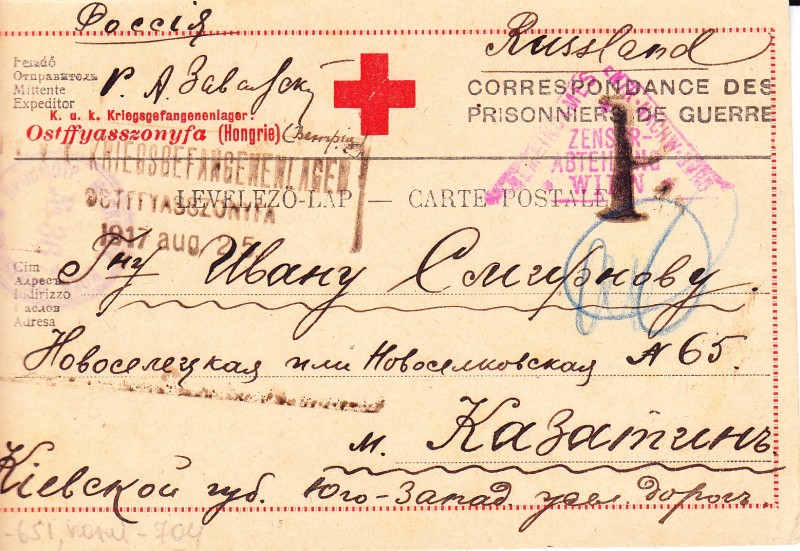 Россія
Russland
Feladó
Отправитель
Mittente
Expeditor
г. А.
CORRESPONDANCE DES
PRISONNIERS DE GUERRE
K. u. k. Kriegsgefangenenlager:
Ostffyasszonyfa (Hongrie)
KRIEGSGEFANGENENLAGER
OSTFFYASSZONYFA
1917 aug. 25
ZENSUR-
ABTEILUNG
WIEN
LEVELEZŐ-LAP — CARTE POSTALE
Cim
Адресъ
Indirizzo
Adresa
Гну Ивану Смирнову.
Новоселецкая или Новоселковская № 65.
м. Казатинъ
Кіевской губ. Юго-Запад. жел. дорогъ.